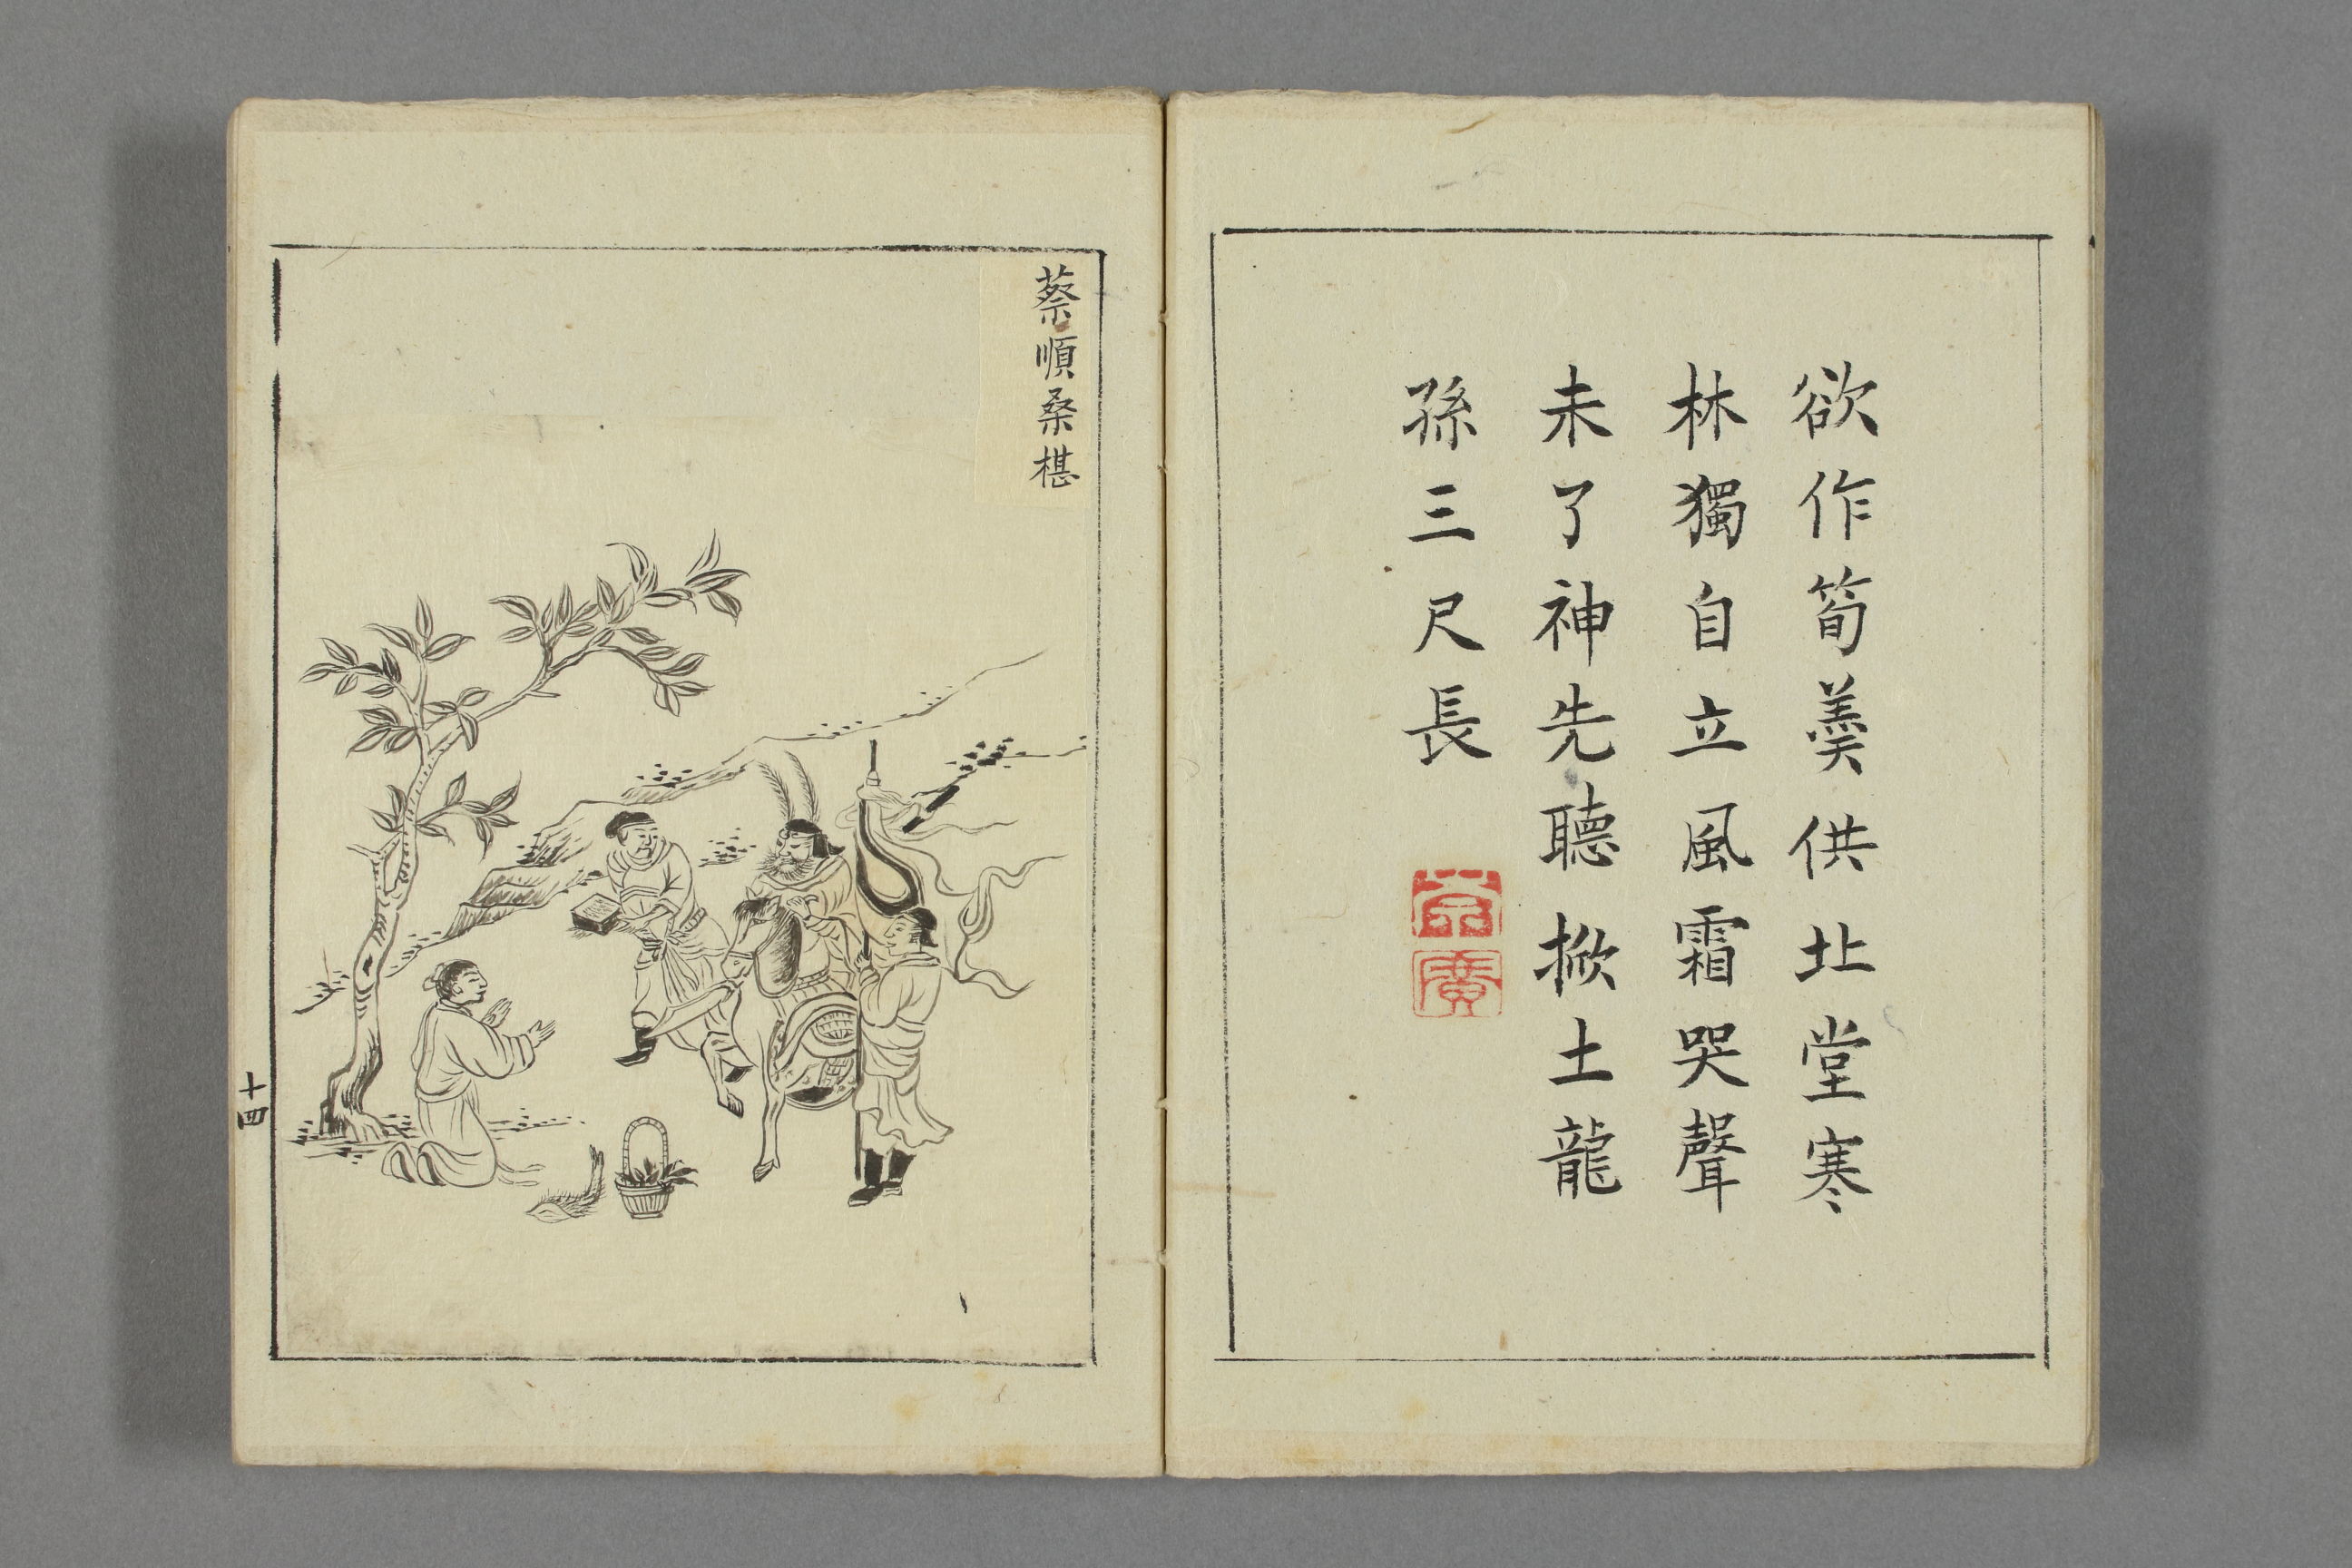 欲作筍羹供北堂寒
林獨自立風霜哭聲
未了神先聽掀土龍
孫三尺長
蔡順桑椹
十四